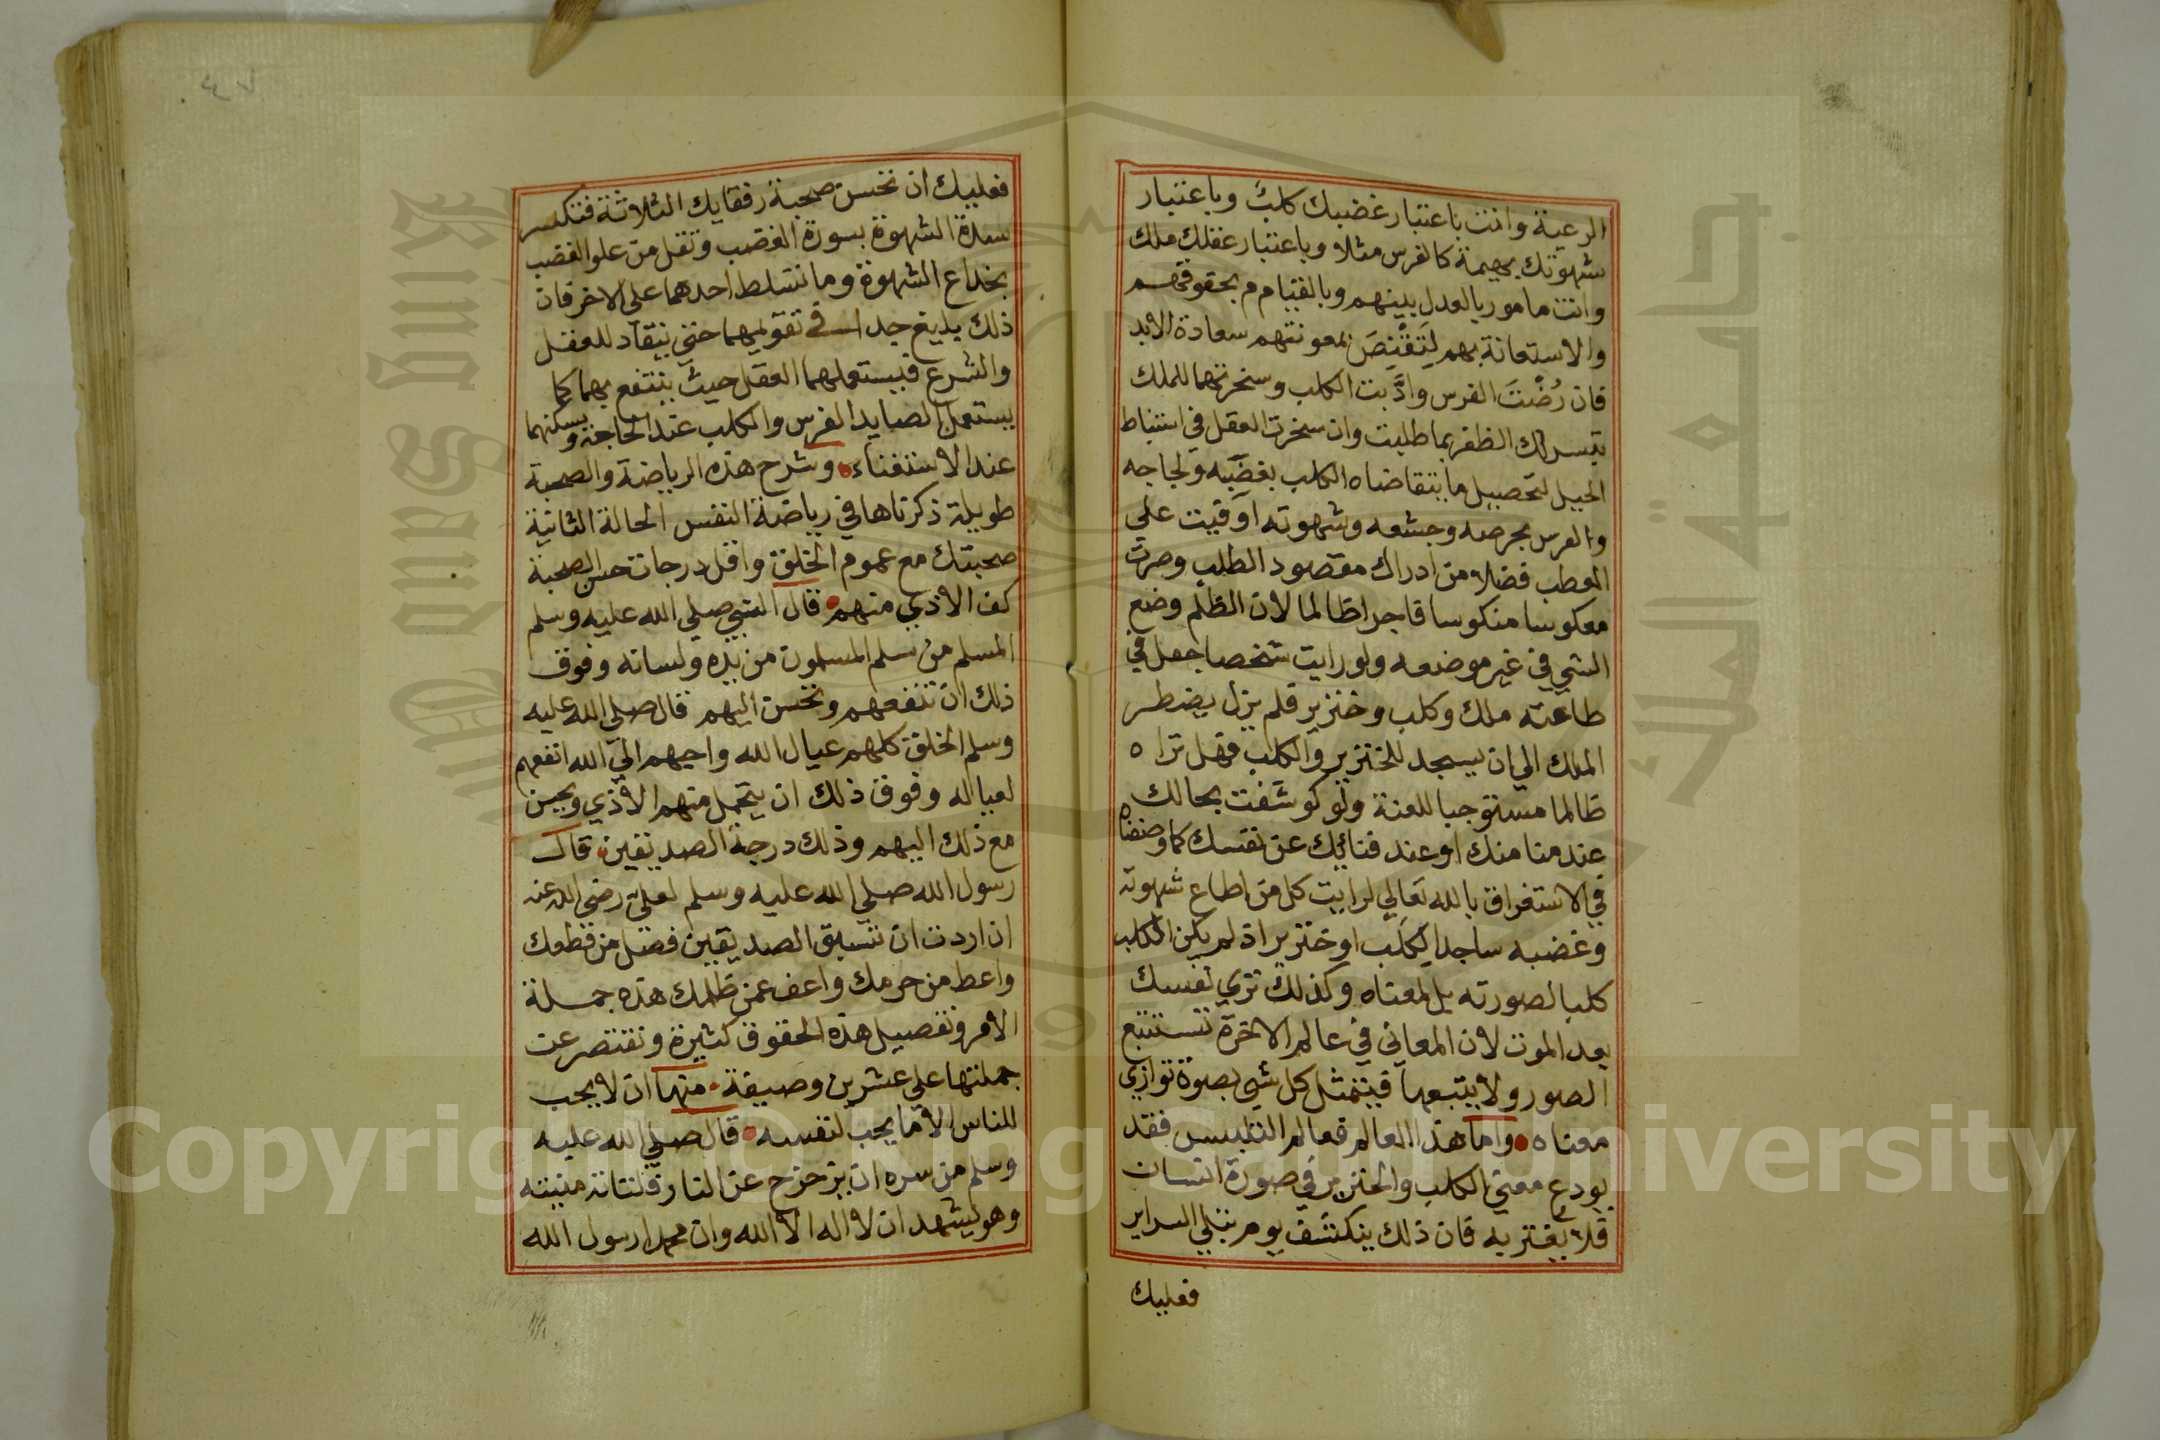 الرعية وانت باعتبار غضبك كلب وباعتبار
شهوتك بهيمة كالفرس مثلا وباعتبار عقلك ملك
وانت مامور بالعدل بينهم وبالقيام بحقوقهم
والاستعانة بهم لِتَقْتنِصَ بمعونتهم سعادة الابد
فان رُضْتَ الفرس وادَّبت الكلب وسخرتهما للملك
تيسر لك الظفر بما طلبت وان سخرت العقل في استنباط
الحيل لتحصيل ما يتقاضاه الكلب بغضبه ولجاجه
والفرس بحرصه وجشعه وشهوته اوقيت علي
العطب فضلا من ادراك مقصود الطلب وصرت
معكوسا منكوسا فاجرا ظالما لان الظلم وضع
الشي في غير موضعه ولو رايت شخصا جعل في
طاعته ملك وكلب وخنزير فلم يزل يضطر
الملك الي ان يسجد للخنزير والكلب فهل تراه
ظالما مستوجبا للعنة ولو كوشفت بحالك
عند منامنك او عند فنائك عن نفسك كما وصفناه
في الاستغراق بالله تعالي لرايت كل من اطاع شهوته
وغضبه ساجدا لكلب او خنزير اذ لم يكن الكلب
كلبا لصورته بل لمعناه وكذلك تري نفسك
بعد الموت لان المعاني في عالم الاخرة تستتبع
الصور ولا يتبعها فيتمثل كل شي بصوة توازي
معناه واما هذا العالم فعالم التلبيس فقد
يودع معني الكلب والخنزير في صورة انسان
فلا يغتر به فان ذلك ينكشف يوم تبلي السراير
فعليك
فعليك ان تحسن صحبة رفقايك الثلاثة فتكسر
الشهوة بسورة الغضب وتقل من علو الغضب
بخداع الشهوة وما تسلط احدهما علي الاخر فان
ذلك بليغ جدا في تقويمهما حتي ينقاد للعقل
والشرع فيستعملهما العقل حيث ينتفع بهما كما
يستعمل الصايد الفرس والكلب عند الحاجة ويسكنهما
عند الاستغناء وشرح هذه الرياضة والصحبة
طويلة ذكرناها في رياضة النفس الحالة الثانية
صحبتك مع عموم الخلق واقل درجات حسن الصحبة
كف الاذي منهم قال النبي صلي الله عليه وسلم
المسلم من سلم المسلمون من يده ولسانه وفوق
ذلك ان تنفعهم وتحسن اليهم قال صلي الله عليه
وسلم الخلق كلهم عيال الله واحبهم الي الله انفعهم
لعياله وفوق ذلك ان يتحمل منهم الاذي ويحسن
مع ذلك اليهم وذلك درجة الصديقين قال
رسول الله صلي الله عليه وسلم لعلي رضي الله عنه
ان اردت ان تسبق الصديقين فصل من قطعك
واعط من حرمك واعف عمن ظلمك هذه جملة
الامر وتفصيل هذه الحقوق كثيرة ونقتصر عن
جملتها علي عشرين وصيفة منها ان لا يحب
للناس الا ما يحب لنفسه قال صلي الله عليه
وسلم من سره ان يزحزح عن النار فلتاته منيته
وهو ليشهد ان لا اله الا الله وان محمدا رسول الله
Copyright © King Saud University